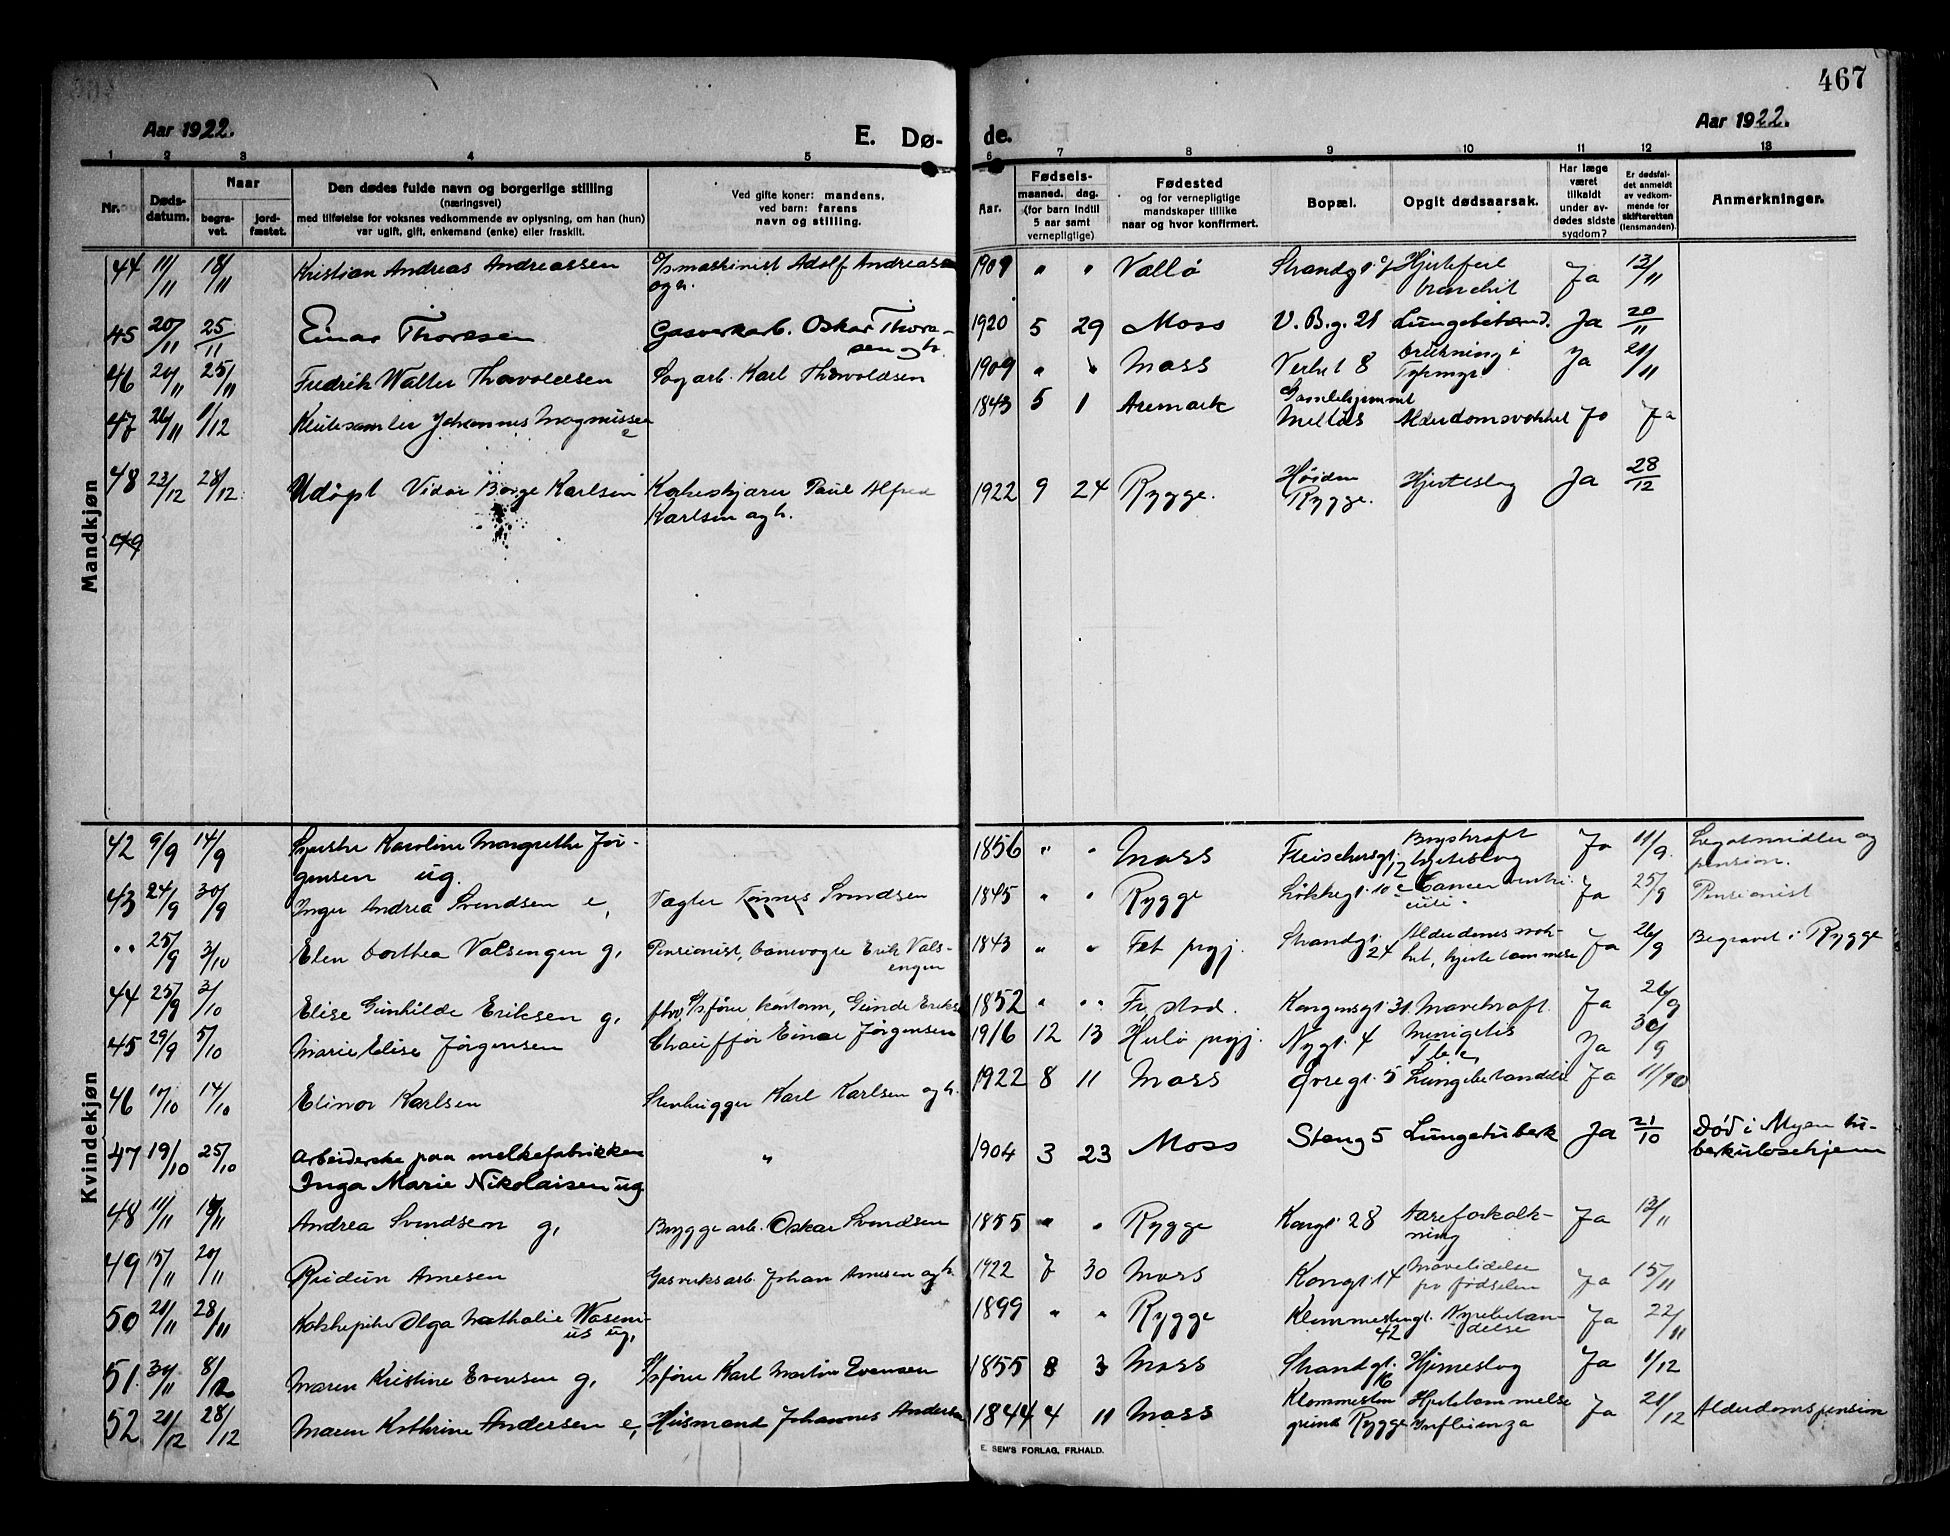 467
Aar 1922.
E. Dø-
de.
Aar 1922.
1 2 3 4 5 6 7 8 9 10 11 12 13
Nr.
Døds-
datum.
Naar
begra-
vet.
jord-
fæstet.
Den dødes fulde navn og borgerlige stilling
(næringsvei)
med tilføielse for voksnes vedkommende av oplysning, om han (hun)
var ugift, gift, enkemand (enke) eller fraskilt.
Ved gifte koner: mandens,
ved barn: farens
navn og stilling.
Aar.
Fødsels-
maaned. dag.
(for barn indtil
5 aar samt
vernepligtige)
Fødested
og for vernepligtige
mandskaper tillike
naar og hvor konfirmert.
Bopæl.
Opgit dødsaarsak.
Har læge
været
tilkaldt
under av-
dødes sidste
sygdom?
Er dødsfal-
det anmeldt
av vedkom-
mende for
skifteretten
(lensmanden).
Anmerkninger.
Mandkjøn
44 11/11 18/11 Kristian Andreas Andreassen D/smaskinist Adolf Andreassen 1909 " " Vallø Strandgt. Hjertefeil Ja 13/11
ogh. bronchit
45 20/11 25/11 Einar Thoresen Gasverkarb. Oskar Thore- 1920 5 29 Moss V. B.g. 21 Lungebetænd. Ja 20/11
sen og h.
46 20/11 25/11 Fredrik Walter Thorvaldsen Sagarb. Karl Thorvaldsen 1909 " " Moss Verket 8 Drukning i Ja 21/11
47 26/11 1/12 Klutesamler Johannes Magnussen 1843 5 1 Aremark Gamlehjemmet
e Melløs Alderdomssvakhet Ja Ja
48 23/12 28/12 Udøpt Vidar Børge Karlsen Kakeskjærer Paul Alfred 1922 9 24 Rygge. Høiden Hjerteslag Ja 28/12
Karlsen ogh. Rygge.
49
Kvindekjøn
42 9/9 14/9 Syerske Karoline Margrethe Jør- 1856 " " Moss Fleischersgt. Brystkræft Ja 11/9 Legatmidler og
gensen ug. 12 hjerteslag pension.
43 24/9 30/9 Inger Andrea Svendsen e, Vægter Tønnes Svendsen 1845 " " Rygge Løkkegt. 10 Cancer ventri- Ja 25/9 Pensionist
culi.
" 25/9 3/10 Elen Dorthea Valsengen g, Pensionist, banevogte Erik Vals- 1843 " " Fet prgj. Strandgt. Alderdomssvak- Ja 26/9 Begravet i Rygge
engen 24 het, hjertelammelse
44 25/9 3/10 Elise Gunhilde Eriksen g, fhv. S/sfører, Gunde Eriksen 1852 " " Fr. stad. Kongensgt. 31. Mavekræft. Ja 26/9
45 29/9 5/10 Marie Elise Jørgensen Chauffør Einar Jørgensen 1916 12 13 Hurlø prgj. Nygt. 4 Menigitis Ja 30/9
46 10/10 14/10 Elinor Karlsen Stenhugger Karl Karlsen ogh. 1922 8 11 Moss Øvregt. 5 Lungebetændelse Ja 11/10
47 19/10 25/10 Arbeiderske paa melkefabrikken " 1904 3 23 Moss Steng 5 Lungetuberk Ja 21/10 Død i Myen tu-
Inga Marie Nikolaisen ug. berkulosehjem
48 11/11 /11 Andrea Svendsen g, Bryggearb. Oskar Svendsen 1855 " " Rygge Kongt. 28 Aareforkalk- Ja 13/11
ning
49 15/11 20/11 Reidun Arnesen Gasverksarb. Johan Arnesen ogh. 1922 7 30 Moss Kongt. 14 Mavelidelse Ja 15/11
fra fødselen
50 21/11 28/11 Kokkepike Olga Nathalie Waseni- 1899 " " Rygge Klommestengt. Nyrebetæn- Ja 22/11
us ug, 42 delse
51. 30/11 8/12 Maren Kristine Evensen g, S/sfører Karl Martin Evensen 1855 8 3 Moss Strandgt. Hjerneslag Ja 1/12
16
52 21/12 28/12 Maren Kathrine Andersen e, Husmand Johannes Andersen 1844 4 11 Moss Klommesten Hjertelammelse Ja 21/12 Alderdomspension
grund Rygge Influenza
E. SEM'S FORLAG, FR.HALD.